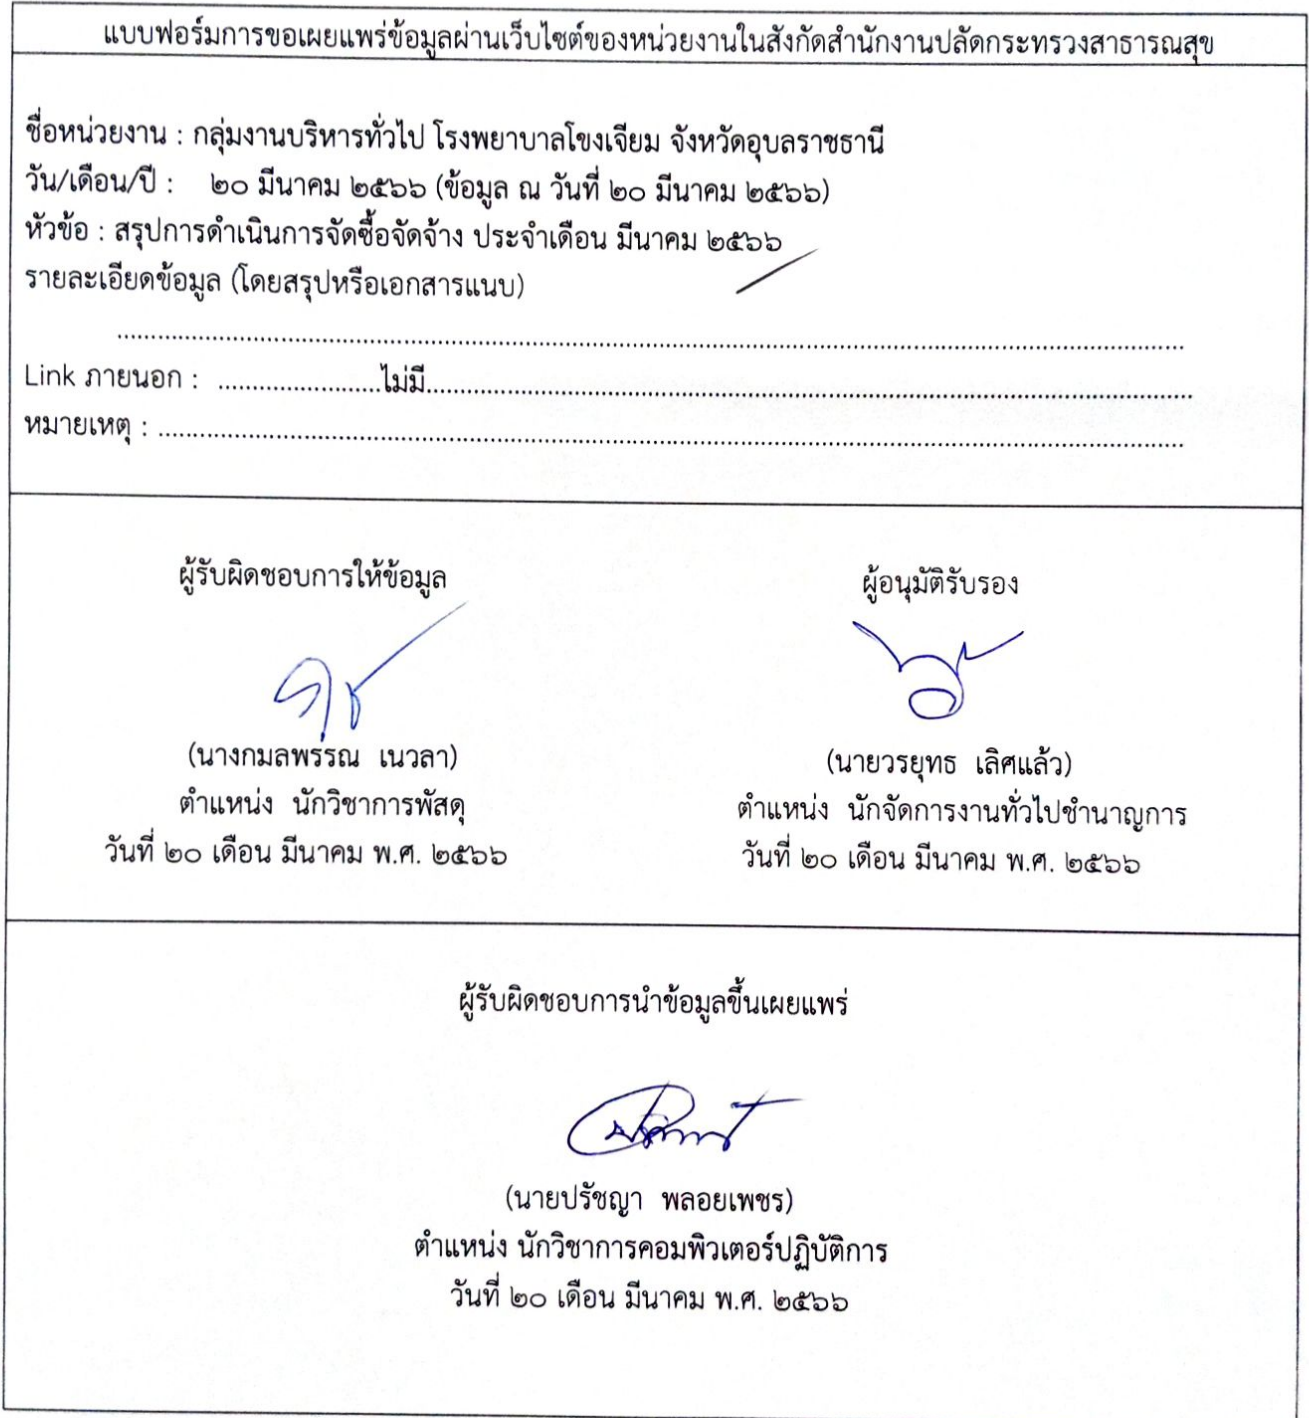 แบบฟอร์มการขอเผยแพร่ข้อมูลผ่านเว็บไซต์ของหน่วยงานในสังกัดสำนักงานปลัดกระทรวงสาธารณสุข
ชื่อหน่วยงาน : กลุ่มงานบริหารทั่วไป โรงพยาบาลโขงเจียม จังหวัดอุบลราชธานี
วัน/เดือน/ปี : ๒๐ มีนาคม ๒๕๖๖ (ข้อมูล ณ วันที่ ๒๐ มีนาคม ๒๕๖๖)
หัวข้อ : สรุปการดำเนินการจัดซื้อจัดจ้าง ประจำเดือน มีนาคม ๒๕๖๖
รายละเอียดข้อมูล (โดยสรุปหรือเอกสารแนบ)
Link ภายนอก : ......................ไม่มี......................
หมายเหตุ : ......................
ผู้รับผิดชอบการให้ข้อมูล
(นางกมลพรรณ เนวลา)
ตำแหน่ง นักวิชาการพัสดุ
วันที่ ๒๐ เดือน มีนาคม พ.ศ. ๒๕๖๖
ผู้อนุมัติรับรอง
(นายวรยุทธ เลิศแล้ว)
ตำแหน่ง นักจัดการงานทั่วไปชำนาญการ
วันที่ ๒๐ เดือน มีนาคม พ.ศ. ๒๕๖๖
ผู้รับผิดชอบการนำข้อมูลขึ้นเผยแพร่
(นายปรัชญา พลอยเพชร)
ตำแหน่ง นักวิชาการคอมพิวเตอร์ปฏิบัติการ
วันที่ ๒๐ เดือน มีนาคม พ.ศ. ๒๕๖๖